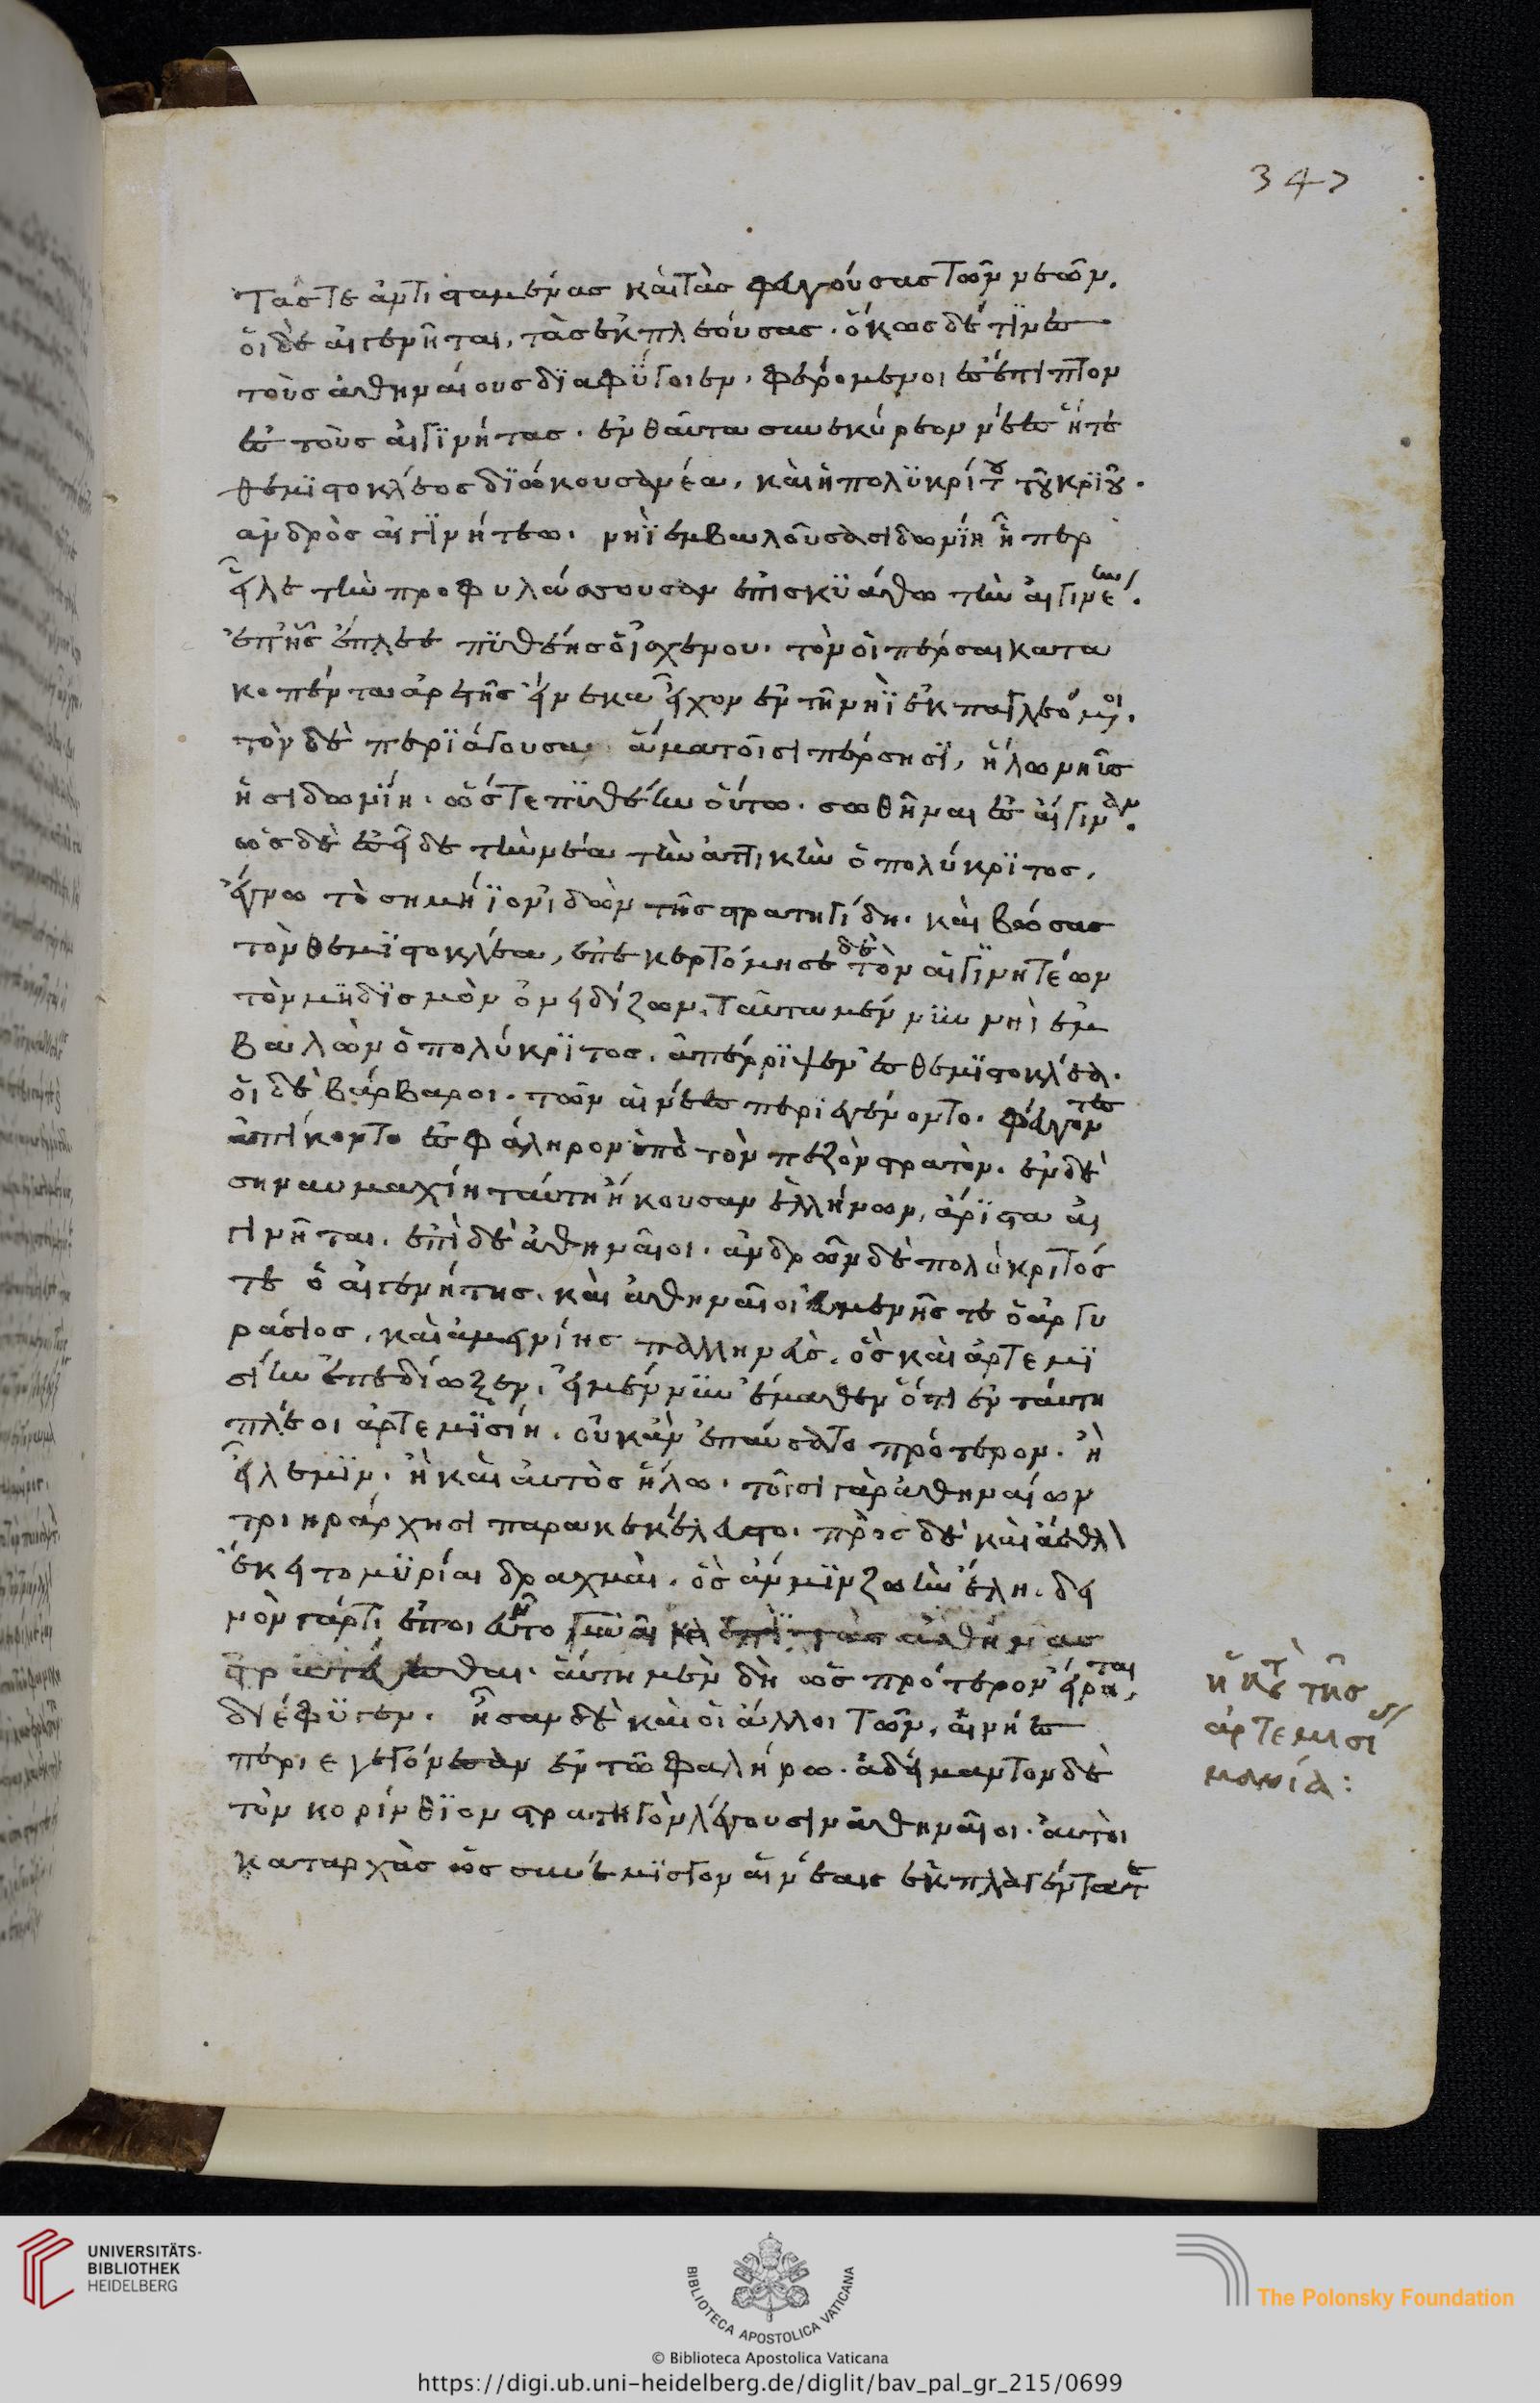 347
τάς τε ἀντισταμένας καὶ τὰς φευγούσας τῶν νεῶν.
οἱ δὲ αἰγενῆται, τὰς ἐκπλεούσας. ὅκως δέ τινες
τοὺς ἀθηναίους διαφύγοιεν. φερόμενοι ἐσέπιπτον
ἐς τοὺς αἰγινήτας. ἐνθαῦτα συνεκύρεον νέες ἥτε
θεμιστοκλέος διώκουσα νέα, καὶ ἡ πολυκρίτου τοῦ κριοῦ.
ἀνδρὸς αἰγινήτεω. νηῒ ἐμβαλοῦσα σιδωνίη ἥπερ
εἷλε τὴν προφυλάσσουσαν ἐπὶ σκιάθω τὴν αἰγιναίην.
ἐπ' ἧς ἔπλεε πυθέης ὁ ἰσχένου. τὸν οἱ πέρσαι κατα
κοπέντα ἀρετῆς εἵνεκα εἶχον ἐν τῆ νηῒ ἐκπαγλεόμενοι.
τὸν δὲ περιάγουσα ἅμα τοῖσι πέρσησι, ἥλω νηῦς
ἡ σιδωνίη. ὥστε πυθέην οὕτω. σωθῆναι ἐς αἴγιναν.
ὡς δὲ ἐσεῖδε τὴν νέα τὴν ἀττικὴν ὁ πολύκριτος,
ἔγνω τὸ σημήϊον ἰδὼν τῆς στρατηγίδη. καὶ βώσας
τὸν θεμιστοκλέα, ἐπεκερτόμησε δὲ τὸν αἰγινητέων
τὸν μηδισμὸν ὀνειδίζων. ταῦτα μέν νυν νηῒ ἐμ
βαλὼν ὁ πολύκριτος. ἀπέρριψεν ἐς θεμιστοκλέα.
οἱ δὲ βάρβαροι. τῶν αἱ νέες περιεγένοντο. φεύγοντες
ἀπίκοντο ἐς φάληρον ὑπὸ τὸν πεζὸν στρατόν. ἐν δὲ
τη ναυμαχίη ταύτη ἤκουσαν ἑλλήνων, ἄριστα αἰ
γινῆται. ἐπὶ δὲ ἀθηναῖοι. ἀνδρῶν δὲ πολύκριτός
τε ὁ αἰγενήτης. καὶ ἀθηναῖοι εὐμενής τε ὁ ἀργυ
ράσιος, καὶ ἀμεινίης παλληνεὺς. ὃς καὶ ἀρτεμι
σίην ἐπεδίωξεν. εἰ μέν νυν ἔμαθεν ὅτι ἐν ταύτη
πλέοι ἀρτεμισίη. οὐκ ἂν ἐπαύσατο πρότερον. ἢ
εἷλέ μιν. ἢ καὶ αὐτὸς ἥλω. τοῖσι γὰρ ἀθηναίων
τριηράρχησι παρακεκέλευστο. πρὸς δὲ καὶ ἄεθλ
ἔκειτο μυρίαι δραχμαὶ. ὃς ἄν μιν ζωὴν ἕλη. δει
νὸν γάρ τι ἐποιεῦντο γυναῖκα ἐπὶ τὰς ἀθήνας
στρατεύεσθαι. αὕτη μὲν δὴ ὡς πρότερον εἴρηται,
διέφυγεν. ἦσαν δὲ καὶ οἱ ἄλλοι τῶν, αἱ νέες
περιεγεγόνεσαν ἐν τῶ φαλήρω. ἀδείμαντον δὲ
τὸν κορίνθιον στρατηγὸν λέγουσιν ἀθηναῖοι. αὐτοὶ
καταρχὰς ὡς συνέμισγον αἱ νέαις ἐκπλαγέντα τε
ἡ κατὰ τῆς
ἀρτεμισίας
μανία:
UNIVERSITÄTS-
BIBLIOTHEK
HEIDELBERG
BIBLIOTECA APOSTOLICA VATICANA
The Polonsky Foundation
© Biblioteca Apostolica Vaticana
https://digi.ub.uni-heidelberg.de/diglit/bav_pal_gr_215/0699